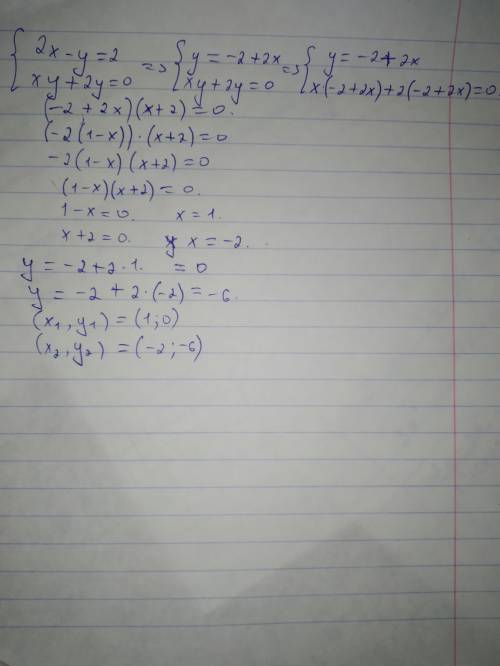 { 2x-y=2 => { y=-2+2x => { y=-2+2x
xy+2y=0 xy+2y=0 x(-2+2x)+2(-2+2x)=0
(-2+2x)(x+2)=0.
(-2(1-x))·(x+2)=0
-2(1-x)(x+2)=0
(1-x)(x+2)=0.
1-x=0. x=1.
x+2=0. x=-2.
y=-2+2·1. =0
y=-2+2·(-2)=-6.
(x₁,y₁)=(1;0)
(x₂,y₂)=(-2;-6)